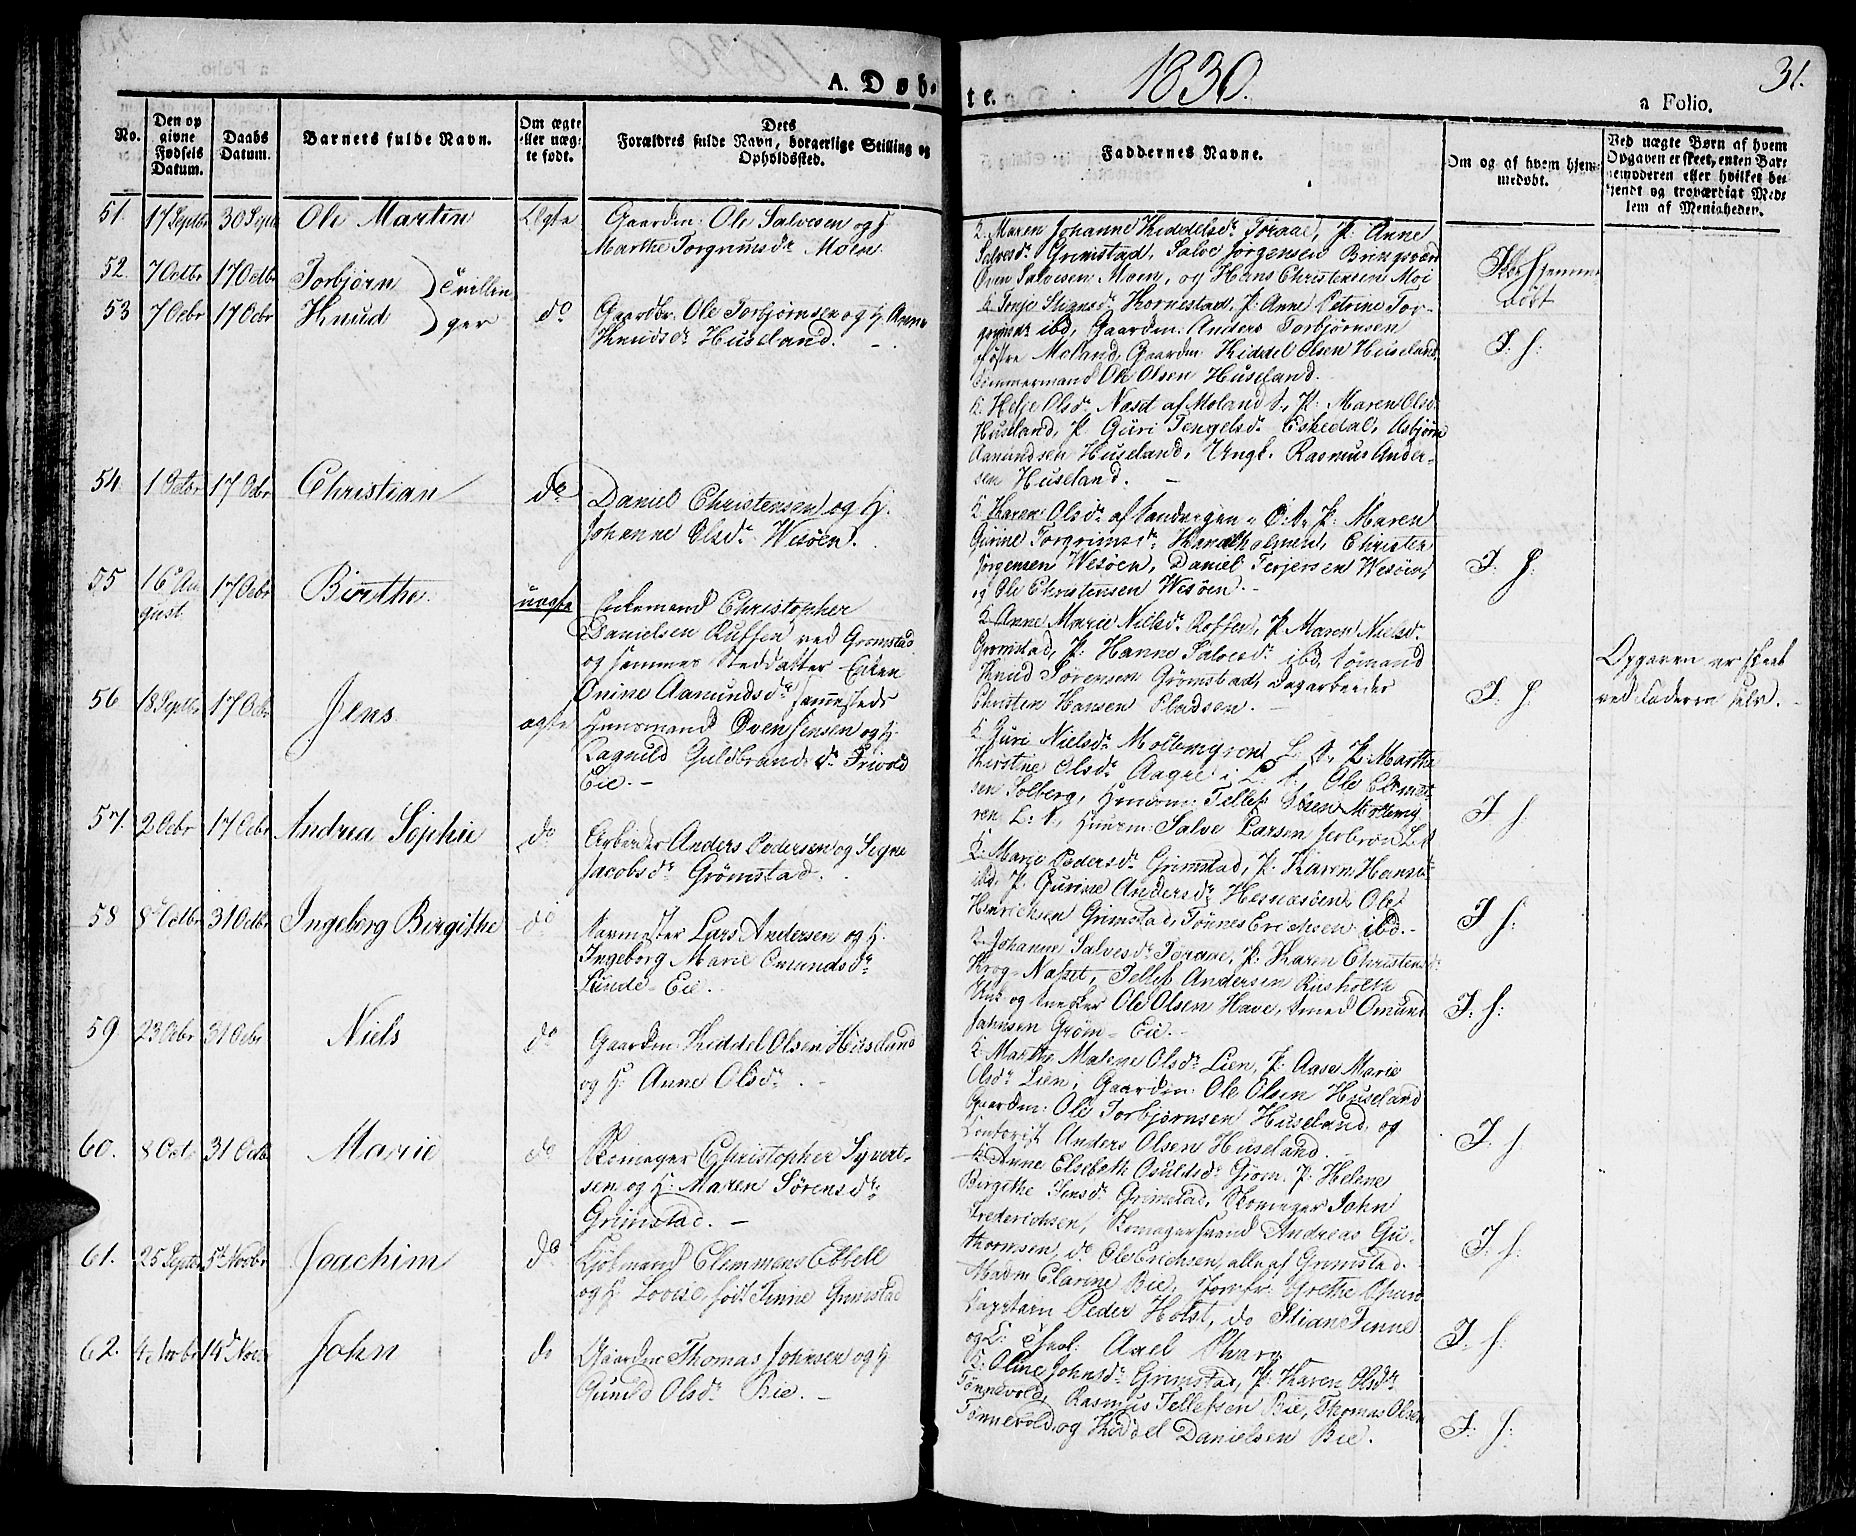 A. Døbte. 1830. 31.
a Folio.
No.
Den op
givne
Fødsels
Datum.
Daabs
Datum.
Barnets fulde Navn.
Om ægte
eller uæg-
te født.
Dets
Forældres fulde Navn, borgerlige Stilling og
Opholdssted.
Faddernes Navne.
Om og af hvem hjem-
medøbt.
Ved uægte Børn af hvem
Opgaven er skeet, enten Bar-
nemoderen eller hvilket be-
kjendt og troværdigt Med-
lem af Menigheden.
51. 17 Septbr 30 Septr Ole Martin Ægte Gaardm: Ole Salvesen og H
Marthe Torgrimsdr Moen
K: Maren Johanne Kiddelsdr Toraae, P: Anne
Salvesdr Grimstad, Salve Jørgensen Bringsværd
Sven Salvesen Moen, og Hans Christensen Moi
Ikke hjemme
døbt
52. 7 Octbr 17 Octbr Torbjørn
53 7 Ocbr 17 Ocbr Knud
Tvillin
ger
do Gaardbr. Ole Torbjørnsen og H. Anne
Knudsdr Huseland.
K. Tonje Stignsdr Hornestad, P: Anne Petrine Tor-
grimsdr ibd, Gaardm: Anders Torbjørnsen
østre Moland, Gaardm: Kiddel Olsen Huseland,
Tømmermand Ole Olsen Huseland.
K. Helje Olsdr Naset af Moland S., P. Maren Olsdr
Huseland, P Guri Tengelsdr Eskedal, Asbjørn
Aamundsen Huseland, Ungk. Rasmus Ander-
sen Huseland.
I. H.
54. 1 Octbr 17 Ocbr Christian do Daniel Christensen og H.
Johanne Olsdr Wesøen.
K. Karen Olsdr af Sandvigen, P: Maren
Gurine Torgrimsdr Handkholmen, Christen
Jørgensen Wesøen, Daniel Terjersen Wesøen,
og Ole Christensen Wesøen.
I: H.
55 16 Au
gust. 17 Ocbr Birethe uægte Enkemand Christopher
Danielsen Ruffen ved Grømstad
og hemmes Steddatter Enken
Onine Aamundsdr sammesteds
K Anne Marie Nielsdr Roffen, P Maren Nielsdr
Grømstad, P: Hanne Salvesdr ibd, Sømand
Knud Sørensen Grømstad, Dagarbeider
Christen Hansen Pladsen.
I: H.
Opgaven er skeet
ved Faderen selv.
56 18 Septbr 17 Ocbr Jens. ægte Huusmand Sven Jensen og H.
Ragnild Guldbrandsdr Frivold
Eie.
K Guri Nielsdr Molbemyren L. S., P: Marthe
Kirstine Olsdr Aagre i L. S., Ole
sen Solberg, Huusm: Tellef
ren L. S., Huusm: Salve Larsen
I H.
57. 2 Ocbr 17 Ocbr Andrea Sophie do Arbeider Anders Pedersen og Signe
Jacobsdr Grømstad.
K: Marie Pedersdr Grimstad, P: Karen Hansdr
ibd, P. Gurine Andersdr Hesnæsøen, Ole
Henrichsen Grimstad, Tønnes Erichsen ibd.
I H.
58 8 Octbr 31 Octbr Ingeborg Birgithe do Havnester Lars Andersen og H.
Ingeborg Marie Omundsdr
Lunde-Eie.
K. Johanne Salvesdr Toraae, P: Karen Christensdr
Krog-Naset, Tellef Andersen Rusholte
og Snedker Ole Olsen Have, Smed Omund
Jahnsen Grøm-Eie.
I: H:
59 23 Ocbr 31 Ocbr Niels do Gaardm: Kiddel Olsen Huseland
og H. Anne Olsdr.
K: Marthe Malene Olsdr Lien, P: Aase Marie
Olsdr Lien, Gaardm: Ole Olsen Huseland
Gaardm: Ole Torbjørnsen Huseland, og
Contorist Anders Olsen Huseland.
I H.
60. 8 Oct 31 Octb Marie do Skomager Christopher Syvert-
sen og H: Maren Sørensdr
Grimstad.
K. Anne Elsebeth Osuldsdr Grøm. P: Helene
Birgethe Jensdr Grimstad, Skomager John
Frederichsen, Skomagersvend Andreas Gu-
thormsen, do Ole Erichsen, alle af Grimstad.
I H.
61. 25 Septbr 5t Novbr Joachim do Kjøbmand Clemmens Ebbell
og H Lovise, født Finne Grimstad
Madm Clarine Bie, Jomfr: Grethe
Kapitain Peder Holst, do Stian Finne
og C: Axel
I: H:
62. 4 Novbr 14d Nov John do Gaardm Thomas Johnsen og H
Gunild Olsdr Bie.
K: Oline Johnsdr Grimstad, P: Karen Olsdr
Tønnevold, Rasmus Tellefsen Bie, Thomas Olsen
Tønnevold, og Kiddel Danielsen Bie.
I: H: